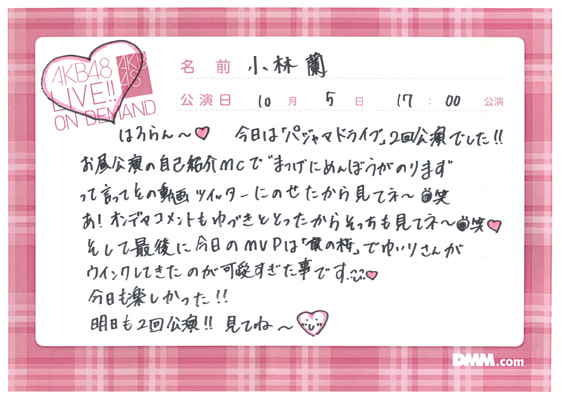 AKB48
LIVE!!
ON DEMAND
AKB
48
名前 小林 蘭
公演日 10月 5日 17:00 公演
はろらん〜 今日は「パジャマドライブ」2回公演でした!!
お昼公演の自己紹介MCで"まつげにめんぼうがのります"
って言ってその動画ツイッターにのせたから見てネ〜笑
あ!オンデマコメントもゆづきととったからそっちも見てネ〜笑
そして最後に今日のMVPは「僕の桜」でゆいりさんが
ウインクしてきたのが可愛すぎた事です...
今日も楽しかった!!
明日も2回公演!! 見てね〜
DMM.com